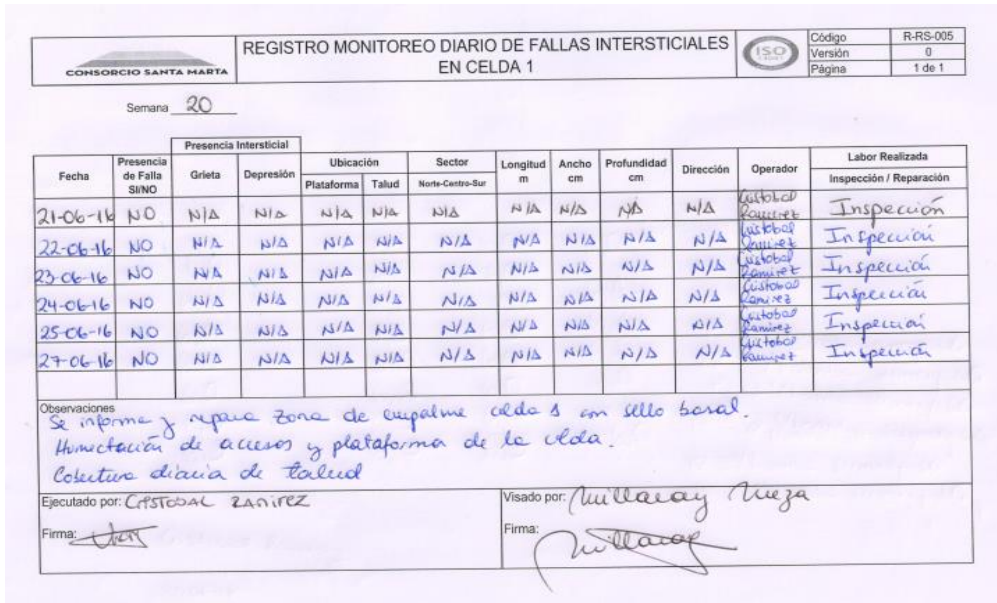 CONSORCIO SANTA MARTA
REGISTRO MONITOREO DIARIO DE FALLAS INTERSTICIALES
EN CELDA 1
ISO
Código R-RS-005
Versión 0
Página 1 de 1
Semana 20
Presencia Intersticial
Fecha Presencia de Falla SI/NO Grieta Depresión Ubicación Plataforma Talud Sector Norte-Centro-Sur Longitud m Ancho cm Profundidad cm Dirección Operador Labor Realizada Inspección / Reparación
21-06-16 NO N/A N/A N/A N/A N/A N/A N/A N/A N/A Cristobal Ramirez Inspección
22-06-16 NO N/A N/A N/A N/A N/A N/A N/A N/A N/A Cristobal Ramirez Inspección
23-06-16 NO N/A N/A N/A N/A N/A N/A N/A N/A N/A Cristobal Ramirez Inspección
24-06-16 NO N/A N/A N/A N/A N/A N/A N/A N/A N/A Cristobal Ramirez Inspección
25-06-16 NO N/A N/A N/A N/A N/A N/A N/A N/A N/A Cristobal Ramirez Inspección
27-06-16 NO N/A N/A N/A N/A N/A N/A N/A N/A N/A Cristobal Ramirez Inspección
Observaciones
Se informa y repara zona de empalme celda 1 con sello basal.
Humectación de accesos y plataforma de la celda.
Cobertura diaria de talud
Ejecutado por: CRISTOBAL RAMIREZ
Visado por: Millaray Meza
Firma:
Firma: Millaray